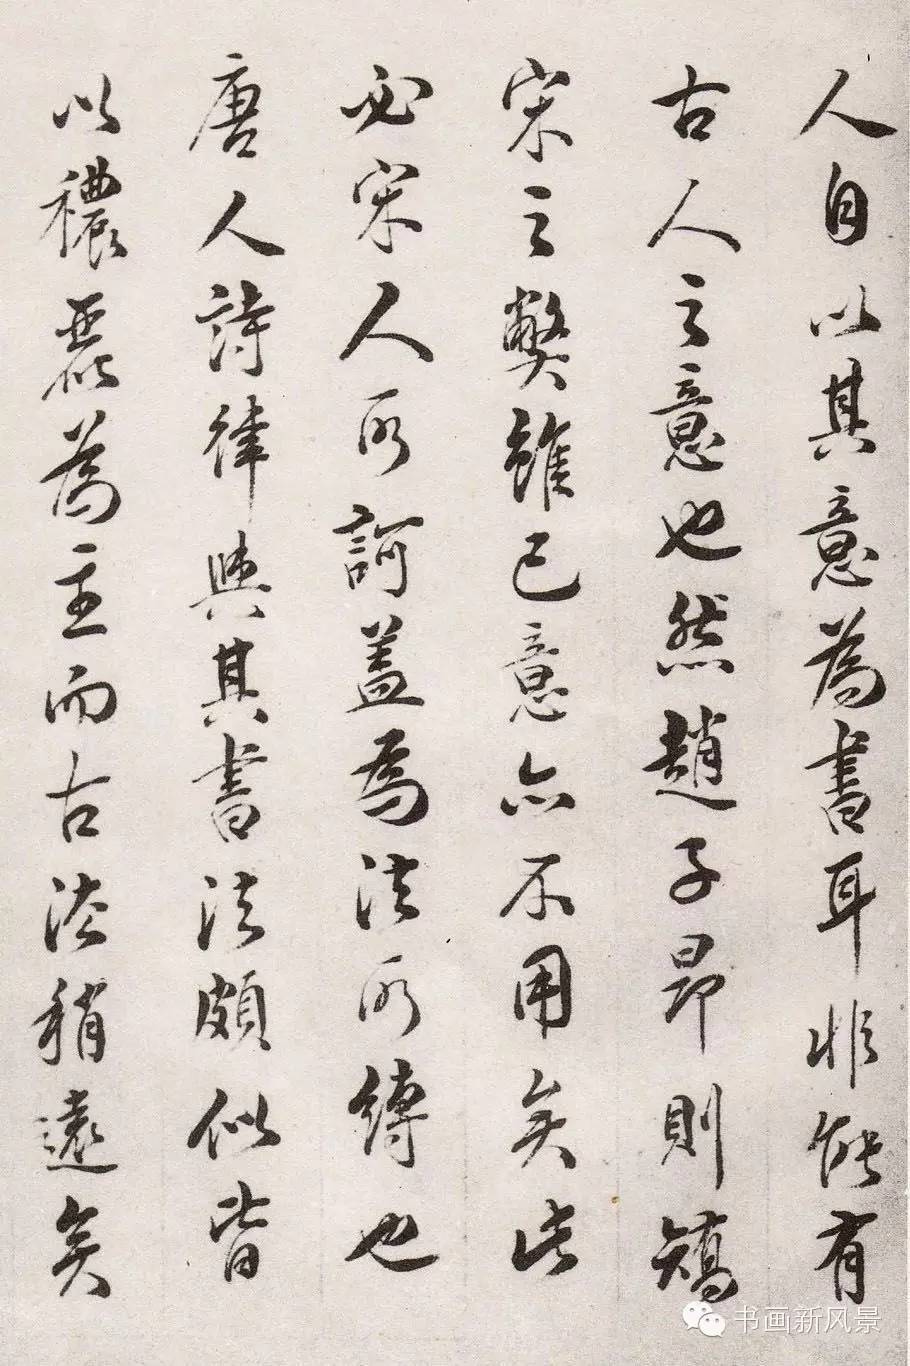 人自以其意為書耳非能有
古人之意也然趙子昂則矯
宋之弊雖己意亦不用矣此
必宋人所訶蓋為法所縛也
唐人詩律與其書法頗似皆
以穠麗為主而古法稍遠矣
书画新风景